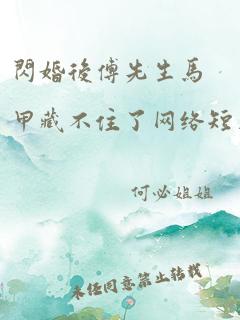 閃婚後傅先生馬
甲藏不住了网络短
何必姐姐
未经同意禁止转载